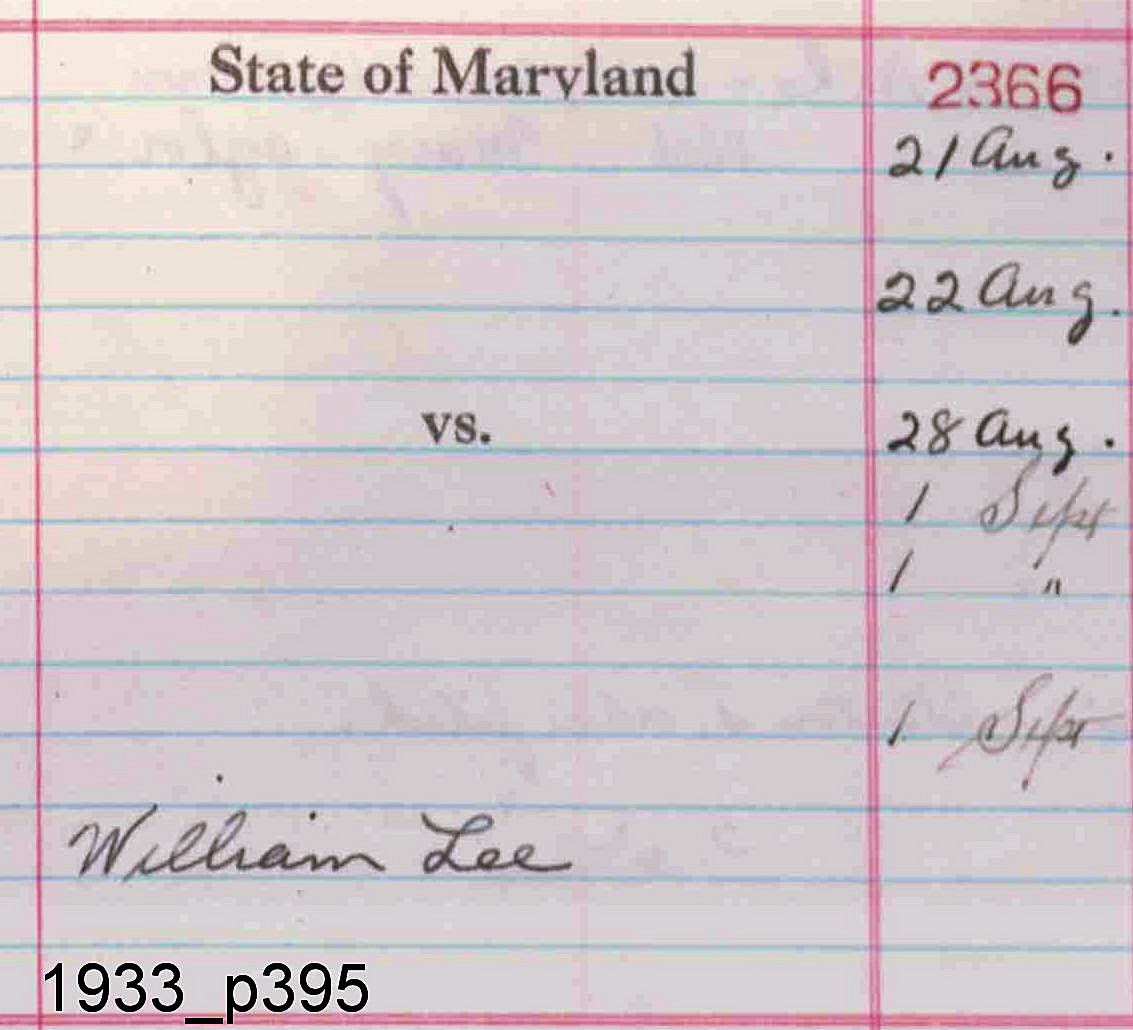 State of Maryland
2366
21 Aug.
22 Aug.
vs.
28 Aug.
1 Sept
1 "
1 Sept
William Lee
1933_p395